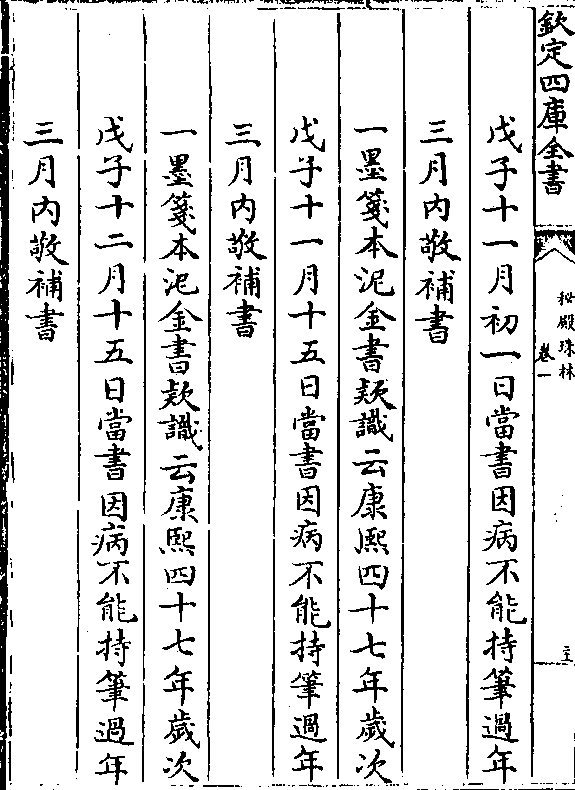 欽定四庫全書
秘殿珠林
卷一
戊子十一月初一日當書因病不能持筆過年
三月内敬補書
一墨箋本泥金書款識云康熙四十七年歲次
戊子十一月十五日當書因病不能持筆過年
三月内敬補書
一墨箋本泥金書款識云康熙四十七年歲次
戊子十二月十五日當書因病不能持筆過年
三月内敬補書